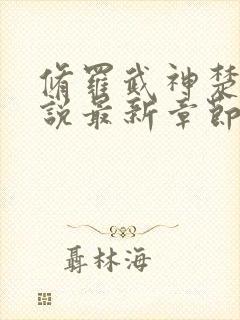 脩羅武神楚
說最新章節
聶林海